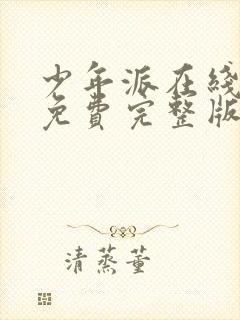 少年派在线
免費完整版
清蒸董